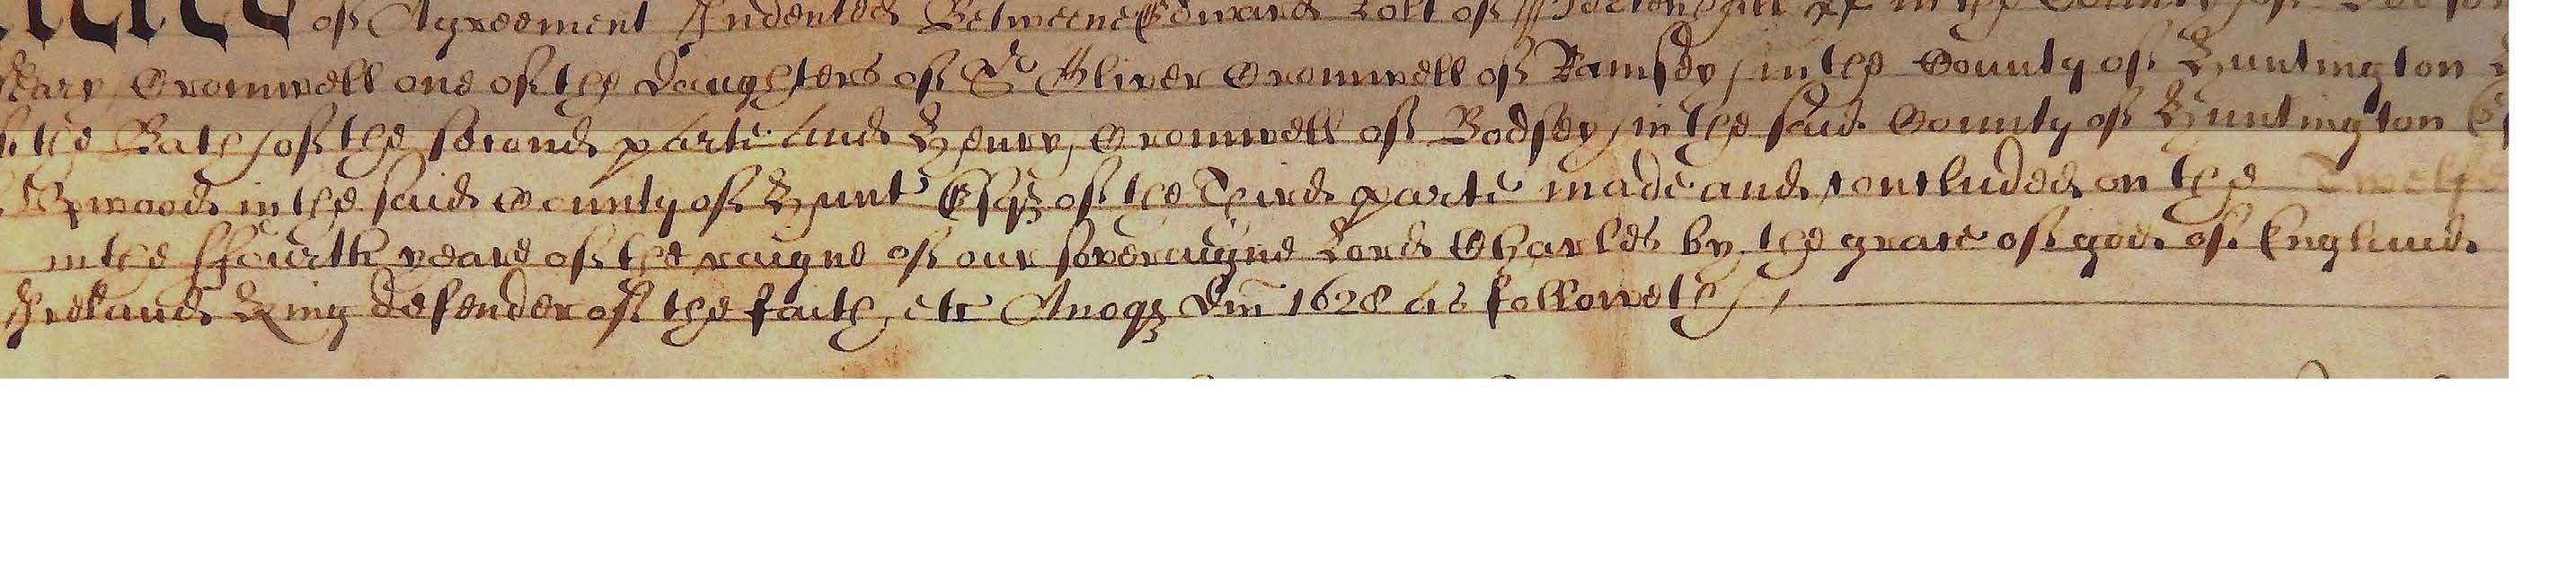 of Agreement Indented Betweene Edward Rolt of in the County of
Mary Cromwell one of the Daughters of Sr Oliver Cromwell of Ramsey in the County of Huntington
the Bath of the second parte And Henry Cromwell of Bodsey in the said County of Huntington
Upwood in the said County of Hunt Esqz of the Third parte made and concluded on the Twelf
in the ffourth yeare of the raigne of our soveraigne Lord Charles by the grace of god of England
Ireland King defender of the faith etc Anoqz Dm̄ 1628 as followeth